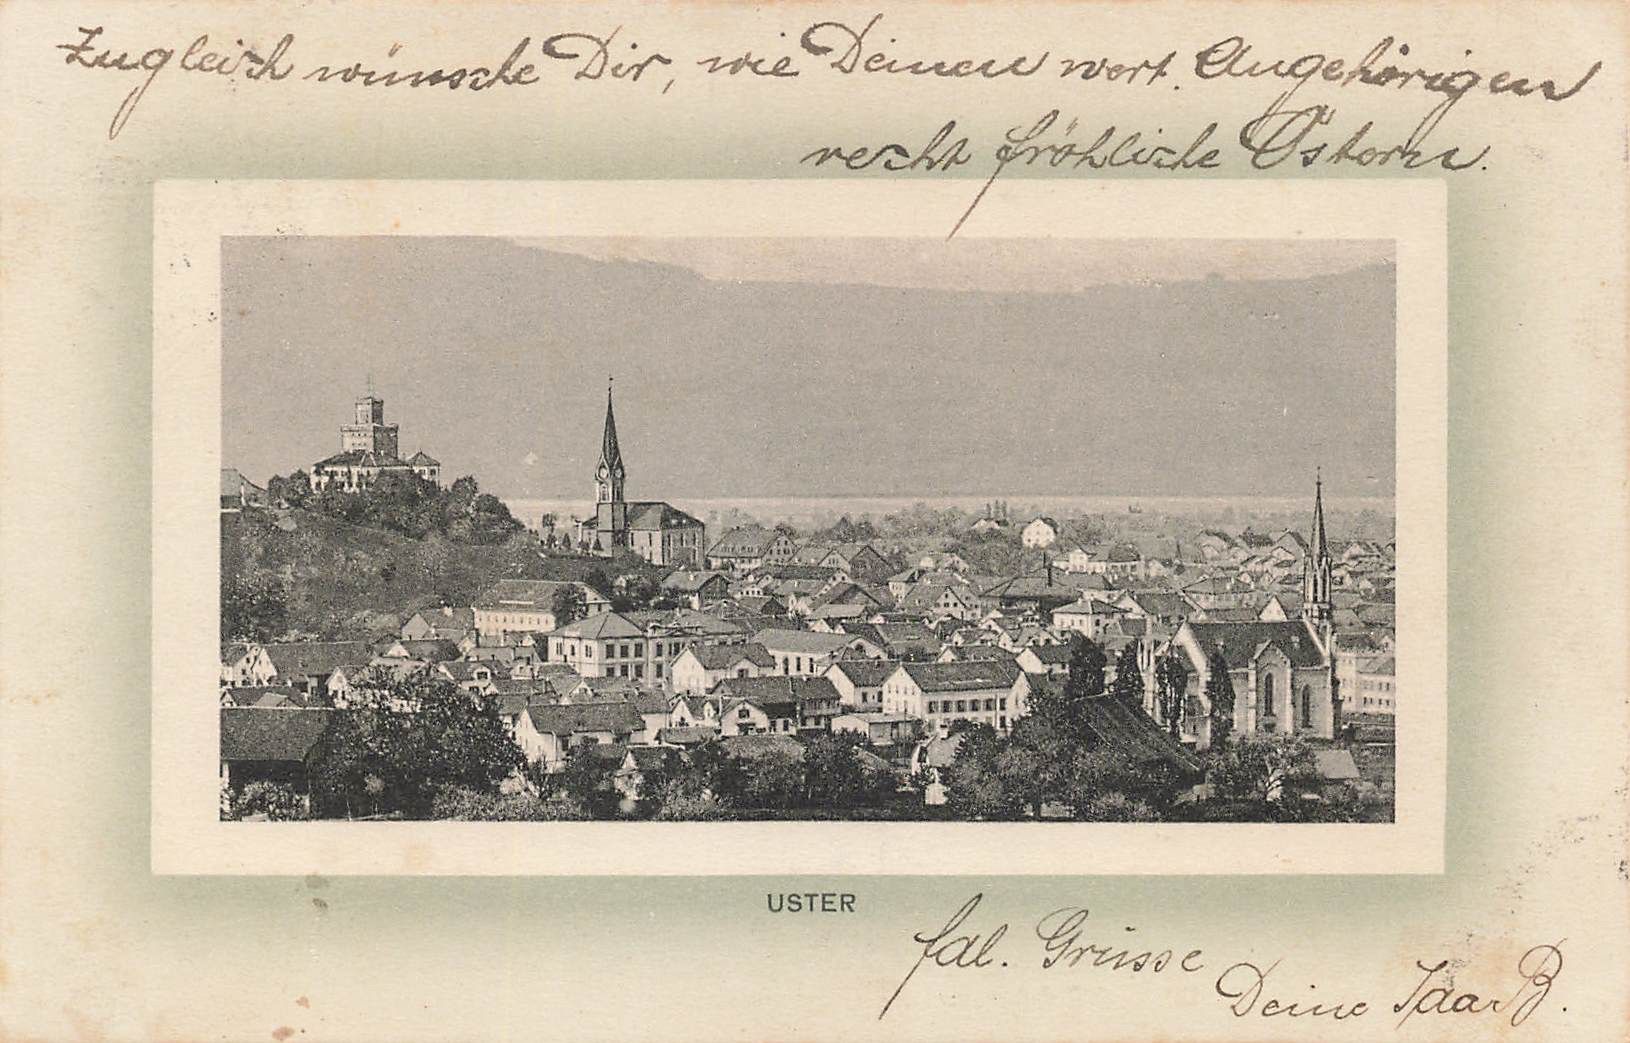 Zugleich wünsche Dir, wie Deinen wert. Angehörigen
recht fröhliche Ostern.
USTER
Grüsse
Deine Ida B.